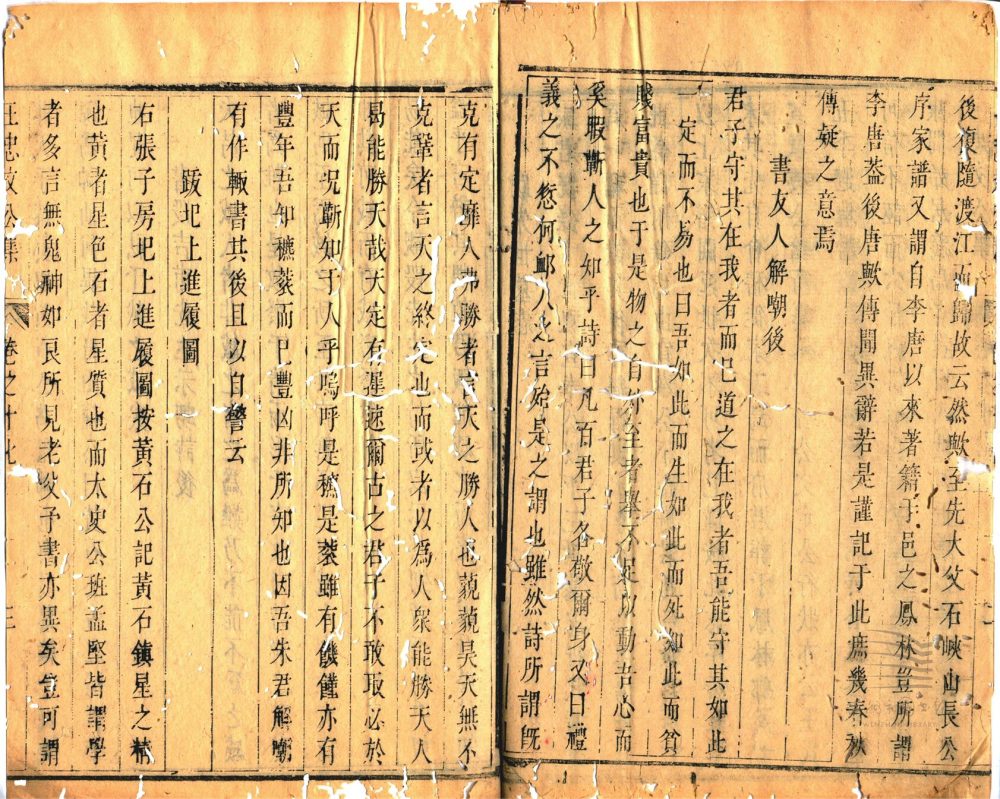 後復隨渡江而歸故云然歟至先大父石峽山長公
序家譜又謂自李唐以來著籍于邑之鳳林豈所謂
李唐葢後唐歟傳聞異辭若是謹記于此庶幾春秋
傳疑之意焉
書友人解嘲後
君子守其在我者而已道之在我者吾能守其如此
一定而不易也曰吾如此而生如此而死如此而貧
賤富貴也于是物之自外至者舉不足以動吾心而
奚暇蘄人之如乎詩曰凡百君子各敬爾身又曰禮
義之不愆何卹人之言殆是之謂也雖然詩所謂旣
克有定靡人弗勝者言天之勝人也藐藐昊天無不
克鞏者言天之終定也而或者以爲人衆能勝天人
曷能勝天哉天定有遲速爾古之君子不敢取必於
天而況蘄知于人乎嗚呼是穮是蓘雖有饑饉亦有
豐年吾知穮蓘而已豐凶非所知也因吾朱君解嘲
有作輒書其後且以自警云
跋圯上進履圖
右張子房圯上進履圖按黃石公記黃石鎮星之精
也黃者星色石者星質也而太史公班孟堅皆謂學
者多言無鬼神如良所見老父予書亦異矣豈可謂
汪忠敘公集 卷之十七 三